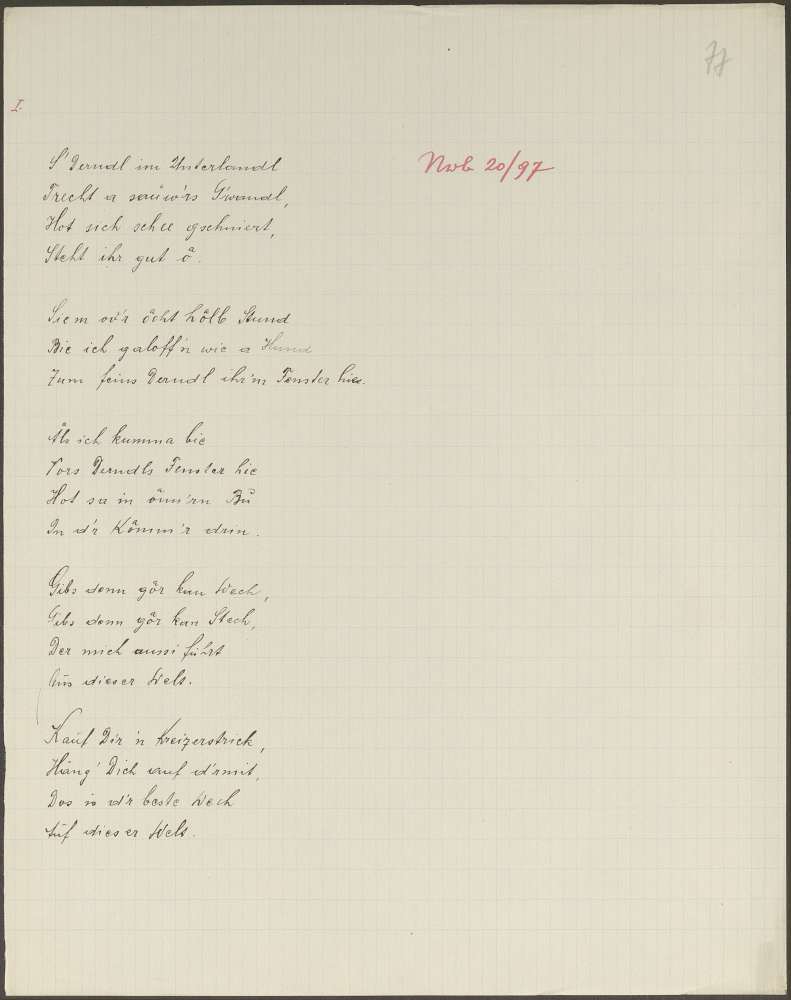 77
I.
Nwb 20/97
S' Derndl im Unterlandl
Trecht a sauw'rs G'wandl,
Hot sich schee gschniert,
Steht ihr gut å.
Siem od'r åcht hålb Stund
Bie ich galoff'n wie a Hund
Zum feins Derndl ihr'm Fenster hie.
Åls ich kumma bie
Vors Derndls Fenster hie
Hot sa in ånn'rn Bů
In d'r Kåmm'r drin.
Gibs denn går kan Wech,
Gibs denn går kan Stech,
Der mich aussi führt
Aus dieser Welt.
Kauf Dir 'n Kreizerstrick,
Häng' Dich auf d'rmit,
Dos is d'r beste Wech
Auf dieser Welt.